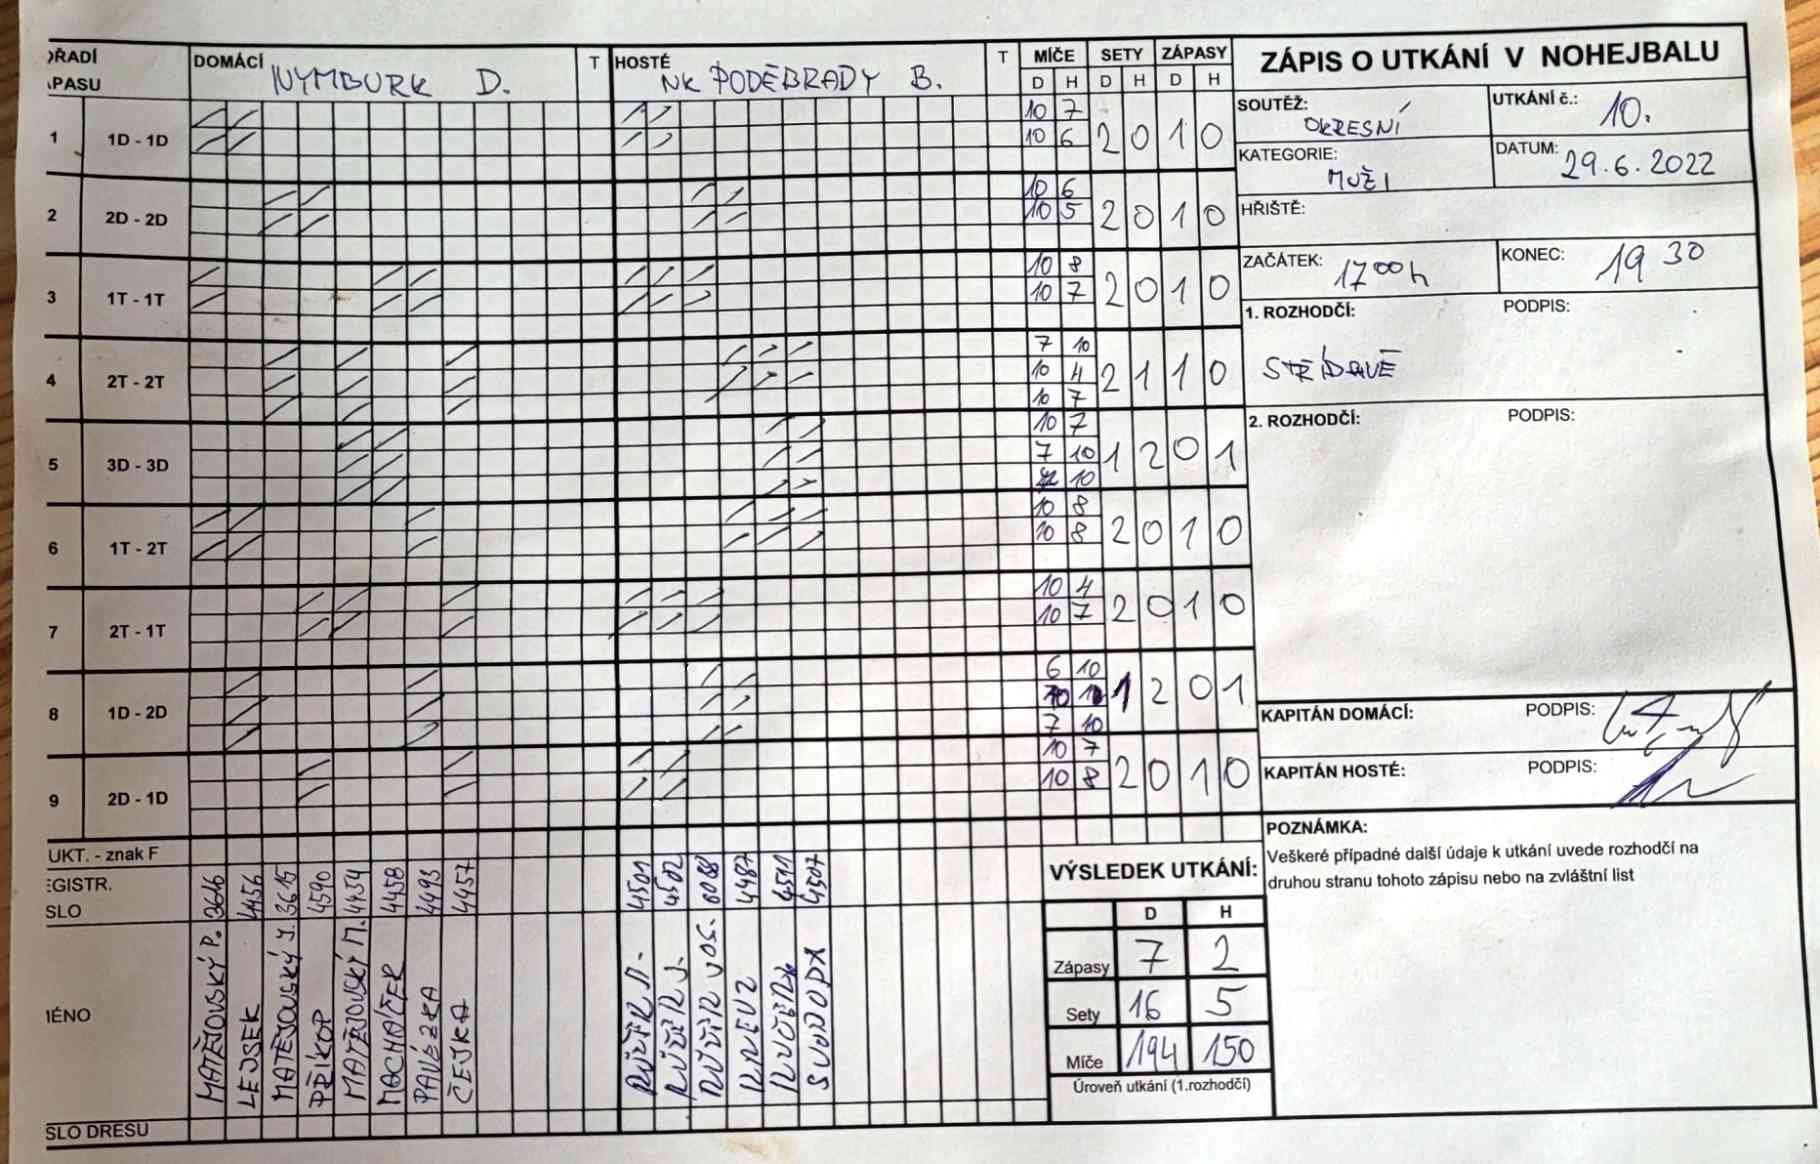 ZÁPIS O UTKÁNÍ V NOHEJBALU
ŘADÍ
PASU
DOMÁCÍ NYMBURK D. T
HOSTÉ NK PODĚBRADY B. T
MÍČE SETY ZÁPASY
D H D H D H
SOUTĚŽ: OKRESNÍ
UTKÁNÍ č.: 10.
KATEGORIE: MUŽI
DATUM: 29.6.2022
HŘIŠTĚ:
ZAČÁTEK: 17 00 h
KONEC: 19 30
1. ROZHODČÍ: PODPIS:
STŘÍDAVĚ
2. ROZHODČÍ: PODPIS:
1 1D - 1D 2 0 1 0
10 7
10 6
2 2D - 2D 2 0 1 0
10 6
10 5
3 1T - 1T 2 0 1 0
10 8
10 7
4 2T - 2T 2 1 1 0
7 10
10 4
10 7
5 3D - 3D 1 2 0 1
10 7
7 10
10
6 1T - 2T 2 0 1 0
10 8
10 8
7 2T - 1T 2 0 1 0
10 4
10 7
8 1D - 2D 1 2 0 1
6 10
10
7 10
9 2D - 1D 2 0 1 0
10 7
10 8
KAPITÁN DOMÁCÍ: PODPIS:
KAPITÁN HOSTÉ: PODPIS:
POZNÁMKA:
Veškeré případné další údaje k utkání uvede rozhodčí na
druhou stranu tohoto zápisu nebo na zvláštní list
UKT. - znak F
EGISTR.
SLO
3616 4456 3615 4590 4454 4458 4493 4457
4501 4502 4487 4511 4507
MÉNO
MATĚJOVSKÝ P.
LEJSEK
MATĚJOVSKÝ J.
PŘÍKOP
MATĚJOVSKÝ M.
MACHAČEK
PAVÉZKA
ČEJKA
SVOBODA
SLO DRESU
VÝSLEDEK UTKÁNÍ:
D H
Zápasy 7 2
Sety 16 5
Míče 194 150
Úroveň utkání (1.rozhodčí)